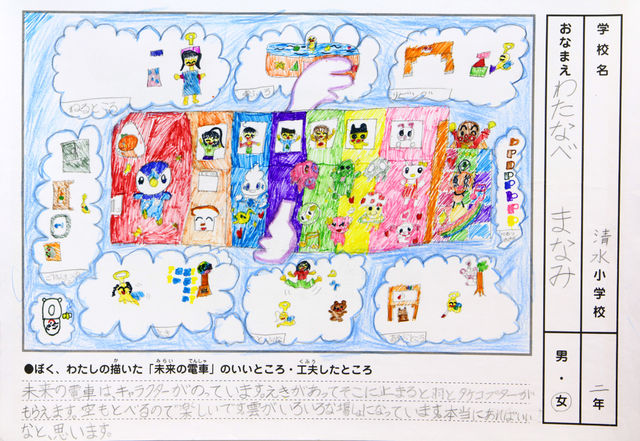 学校名 清水小学校 二年
おなまえ わたなべ まなみ 男・女
ねるところ
●ぼく、わたしの描いた「未来の電車」のいいところ・工夫したところ
未来の電車は、キャラクターがのっています。えきがあってそこに止まると羽とタケコプターが
もらえます。空もとべるので楽しいです雲がいろいろな場しょになっています。本当にあればいい
なと、思います。